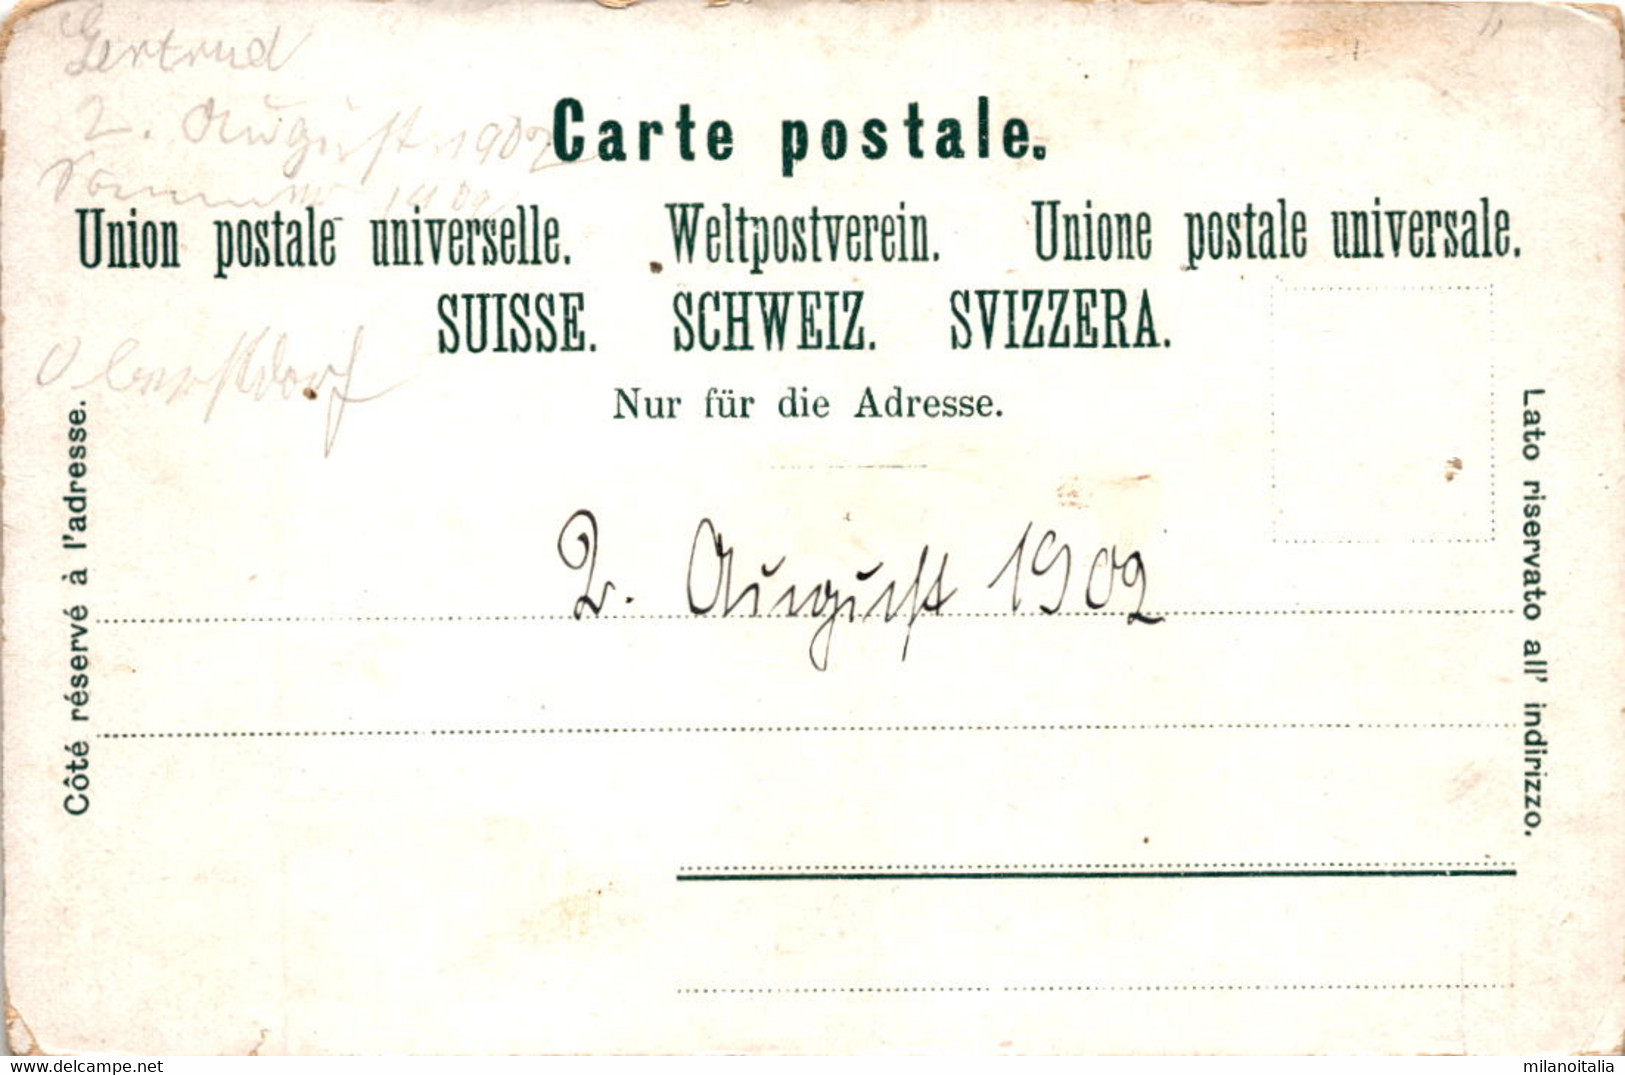 Gertrud
2. August 1902
Carte postale.
Sommer 1902
Union postale universelle. Weltpostverein. Unione postale universale.
SUISSE. SCHWEIZ. SVIZZERA.
Oberstdorf
Nur für die Adresse.
Côté réservé à l'adresse.
Lato riservato all' indirizzo.
2. August 1902
www.delcampe.net
milanoitalia